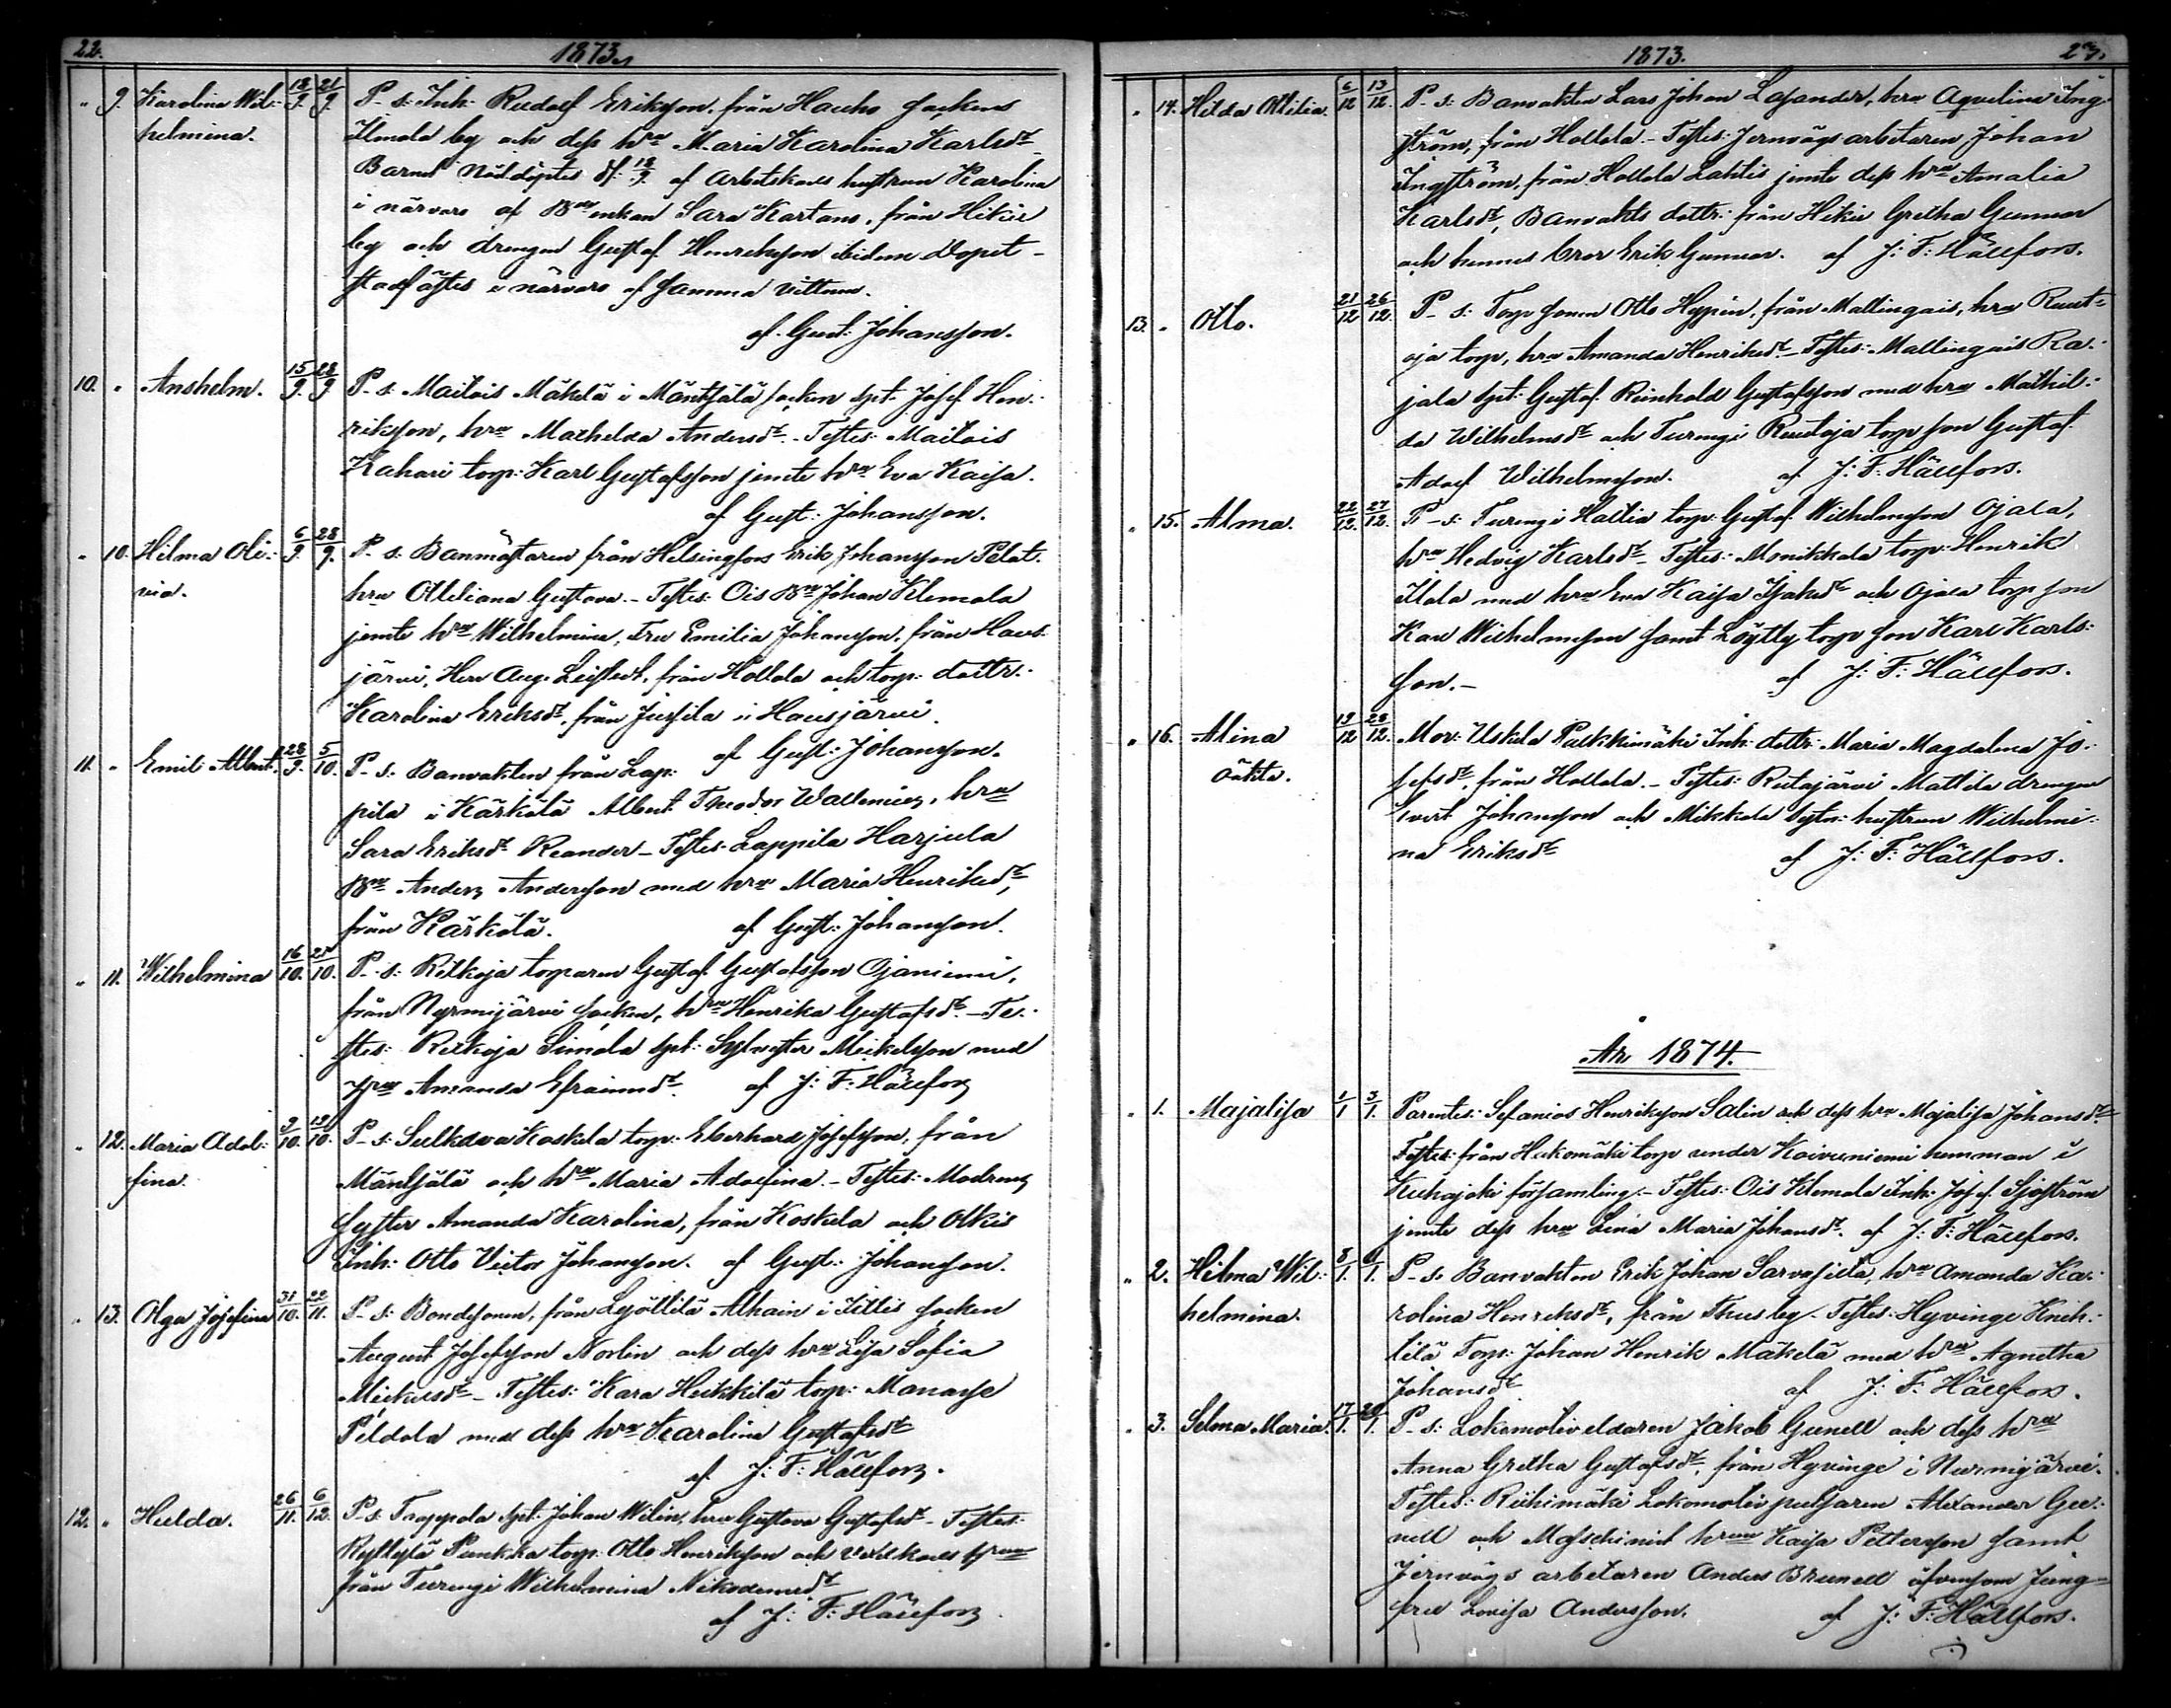 22. 1873.
" 9. Karolina Wil- 18/9. 21/9. P-s: Inh: Rudolf Eriksson, från Hauho socken
helmina. Ilmola by och dess hru Maria Karolina Karlsdr
Barnet nöddöptes d: 18/9. af Arbetskarls hustrun Karolina
i närvaro af enkan Sara Kartano, från Hikiä
by och drengen Gustaf Henriksson ibidem Dopet
stadfästes i närvaro af samma vittnen.
af Gust: Johansson.
10. " Anshelm. 15/9. 28/9. P-s: Maitois Mäkelä i Mäntsälä socken spt: Josef Hen-
riksson, hru Mathilda Andersdr - Testes: Maitois
Kahari torp: Karl Gustafsson jemte hru Eva Kaisa.
af Gust: Johansson.
" 10. Hilma Oli- 6/9. 28/9. P-s: Banmästaren från Helsingfors Erik Johansson Pelat.
via. hru Ottiliana Gustava. - Testes: Ois Johan Klemola
jemte hru Wilhelmina, Fru Emilia Johansson, från Haus-
järvi, Herr Aug. från Hollola och torp: dottr:
Karolina Eriksdr, från i Hausjärvi.
af Gust: Johansson.
11. " Emil Albert. 28/9. 5/10. P-s: Banvakten från Lap-
pila i Kärkölä Albert Theodor Wallenius, hru
Sara Eriksdr Reander - Testes: Lappila Harjula
Anders Andersson med hru Maria Henriksdr,
från Kärkölä. af Gust: Johansson.
" 11. Wilhelmina 16/10. 25/10. P-s: Ritkoja torparen Gustaf Gustafsson Ojaniemi,
från Nurmijärvi socken, hru Henrika Gustafsdr. - Te-
stes: Ritkoja Simola spt: Sylvester Mickelsson med
hru Amanda Efraimsdr. af J: F: Hällfors
" 12. Maria Adol- 9/10. 19/10. P-s: Sulkava Koskela torp: Eberhard Josefsson, från
fina. Mäntsälä och hru Maria Adolfina. - Testes: Modrens
syster Amanda Karolina, från Koskela och Otkis
Inh: Otto Victor Johansson. af Gust: Johansson.
" 13. Olga Josefina 31/10. 22/11. P-s: Bondesonen, från Lyöttilä Alhain i Iittis socken
August Josefsson Norlin och dess hru Lisa Sofia
Mickelsdr - Testes: Kara Heikkilä torp: Manasse
Peldola med dess hru Karolina Gustafsdr
af J: F: Hällfors.
12. " Hulda. 26/11. 6/12. P-s: Trappola spt: Johan Wilin, hru Gustava Gustafsdr - Testes:
Ryttylä Punkka torp: Otto Henriksson och hrun
från Turengi Wilhelmina Nikodemusdr
af J: F: Hällfors.
1873. 23.
" 14. Hilda Ottilia. 6/12 13/12. P-s: Banvakten Lars Johan Lasander, hru Aqvelina Ing-
ström, från Hollola - Testes: Jernvägsarbetaren Johan
Ingström, från Hollola Lahtis jemte dess hru Amalia
Karlsdr, Banvakts dottr: från Hikiä Gretha Gunnar
och hennes bror Erik Gunnar. af J: F: Hällfors.
13. " Otto. 21/12 26/12. P-s: Torp sonen Otto Hypén, från Mallingais, hru Ruut-
oja torp, hru Amanda Henriksdr - Testes: Mallingais Ra-
jala spt: Gustaf Reinhold Gustafsson med hru Mathil-
da Wilhelmsdr och Turengi Ruutoja torp son Gustaf
Adolf Wilhelmsson. af J: F: Hällfors.
" 15. Alma. 22/12. 27/12. P-s: Turengi Hallia torp: Gustaf Wilhelmsson Ojala,
hru Hedvig Karlsdr - Testes: Monikkala torp: Henrik
Ilola med hru Eva Kaisa Isaksdr och Ojala torp son
Karl Wilhelmsson samt Löytty torp son Karl Karls-
son. - af J: F: Hällfors.
" 16. Alina 19/12 28/12. Mor: Uskila Pukkimäki Inh: dottr: Maria Magdalena Jo-
oäkta. sefsdr, från Hollola. - Testes: Riitajärvi Mattila drengen
Evert Johansson och Mikkola Sytn: hustrun Wilhelmi-
na Eriksdr af J: F: Hällfors.
År 1874.
" 1. Majalisa 1/1 3/1. Parentes: Sefanias Henriksson Salin och dess hru Majalisa Johansdr
Testes: från Hakomäki torp under Koivuniemi hemman i
Kuhajoki församling. - Testes: Ois Klemola Inh: Josef Sjöström
jemte dess hru Lena Maria Johansdr. af J: F: Hällfors.
" 2. Hilma Wil- 8/1. 11/1. P-s: Banvakten Erik Johan Sarvasilta, hru Amanda Ka-
helmina. rolina Henriksdr, från Thusby - Testes: Hyvinge Knih-
tilä Torp: Johan Henrik Mäkelä med hru Agnetha
Johansdr af J: F: Hällfors.
" 3. Selma Maria. 17/1. 20/1. P-s: Lokomotiveldaren Jakob Gunell och dess hru
Anna Gretha Gustafsdr, från Hyvinge i Nurmijärvi.
Testes: Riihimäki Lokomotivputsaren Alexander Gu-
nell och Maschinist hrun Kaisa Pettersson samt
Jernvägs arbetaren Anders Brunell äfvensom Jung-
fru Lovisa Andersson. af J: F: Hällfors.